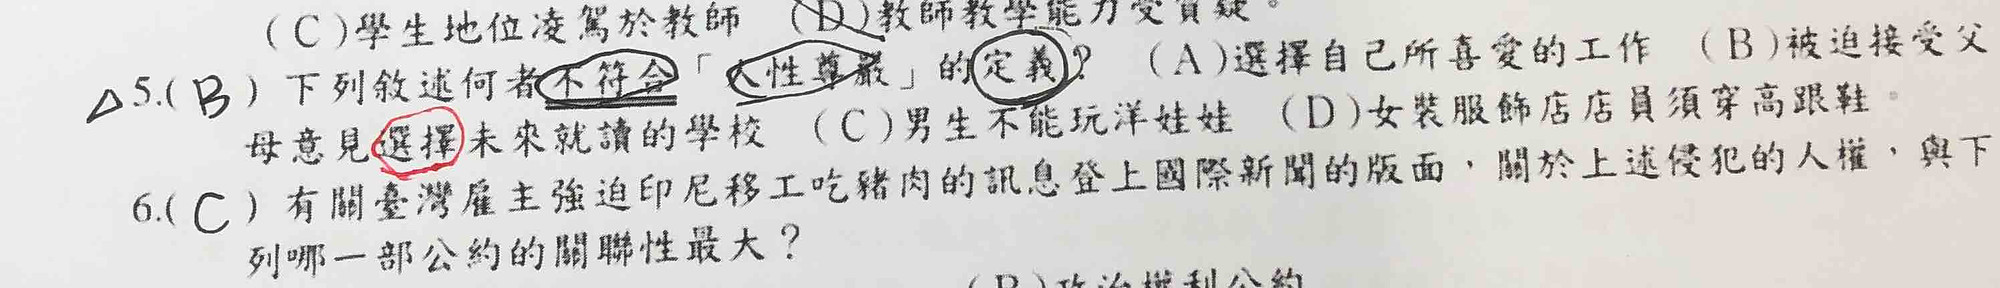 (C)學生地位凌駕於教師 (D)教師教學能力受質疑。
△5.(B) 下列敘述何者不符合「人性尊嚴」的定義？ (A)選擇自己所喜愛的工作 (B)被迫接受父
母意見選擇未來就讀的學校 (C)男生不能玩洋娃娃 (D)女裝服飾店店員須穿高跟鞋。
6.(C) 有關臺灣雇主強迫印尼移工吃豬肉的訊息登上國際新聞的版面，關於上述侵犯的人權，與下
列哪一部公約的關聯性最大？
(B)政治權利公約